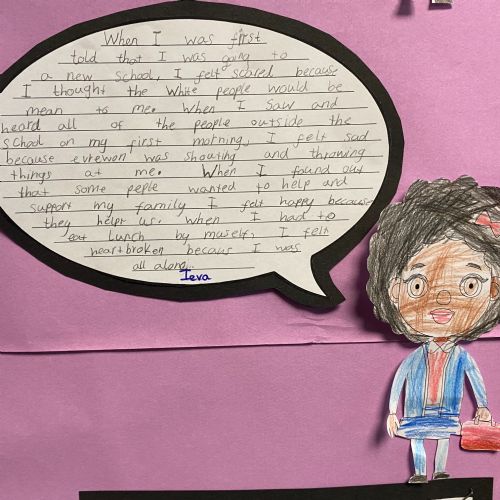 When I was first
told that I was going to
a new school, I felt scared because
I thought the white people would be
mean to me. When I saw and
heard all of the people outside the
school on my first morning, I felt sad
because evrewon was shouting and throwing
things at me. When I found out
that some peple wanted to help and
support my family I felt happy because
they helpt us. When I had to
eat lunch by muself, I felt
heartbroken becaus I was
all alone...
Ieva